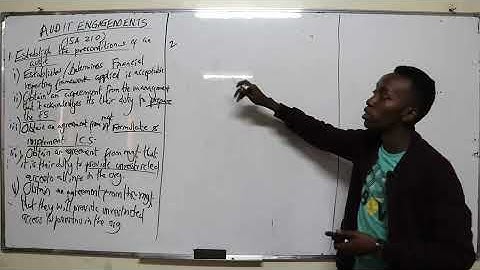 AUDIT ENGAGEMENTS
(ISA 210)
1. Establish the preconditions of an
audit
i) Establish / Determines Financial
reporting framework applied is acceptable
ii) Obtain an agreement from the management
that it acknowledges its their duty to prepare
the FS
iii) Obtain an agreement from mgt Formulate &
implement ICS
iv) Obtain an agreement from mgt that
it is their duty to provide unrestricted
access to all info in the org
v) Obtain an agreement from the mgt
that they will provide unrestricted
access to persons in the org
2.